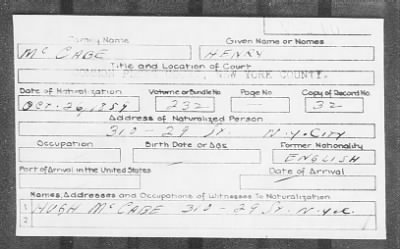 Family Name Given Name or Names
Mc CABE HENRY
Title and Location of Court
NEW YORK COUNTY.
Date of Naturalization Volume or Bundle No Page No Copy of Record No
OCT. 26, 1859 232 — 32
Address of Naturalized Person
313 - 29 St. N.Y. CITY
Occupation Birth Date or Age Former Nationality
ENGLISH
Port of Arrival in the United States Date of Arrival
Names, Addresses and Occupations of Witnesses To Naturalization
1 HUGH McCABE 313 - 29 St. N.Y.C.
2